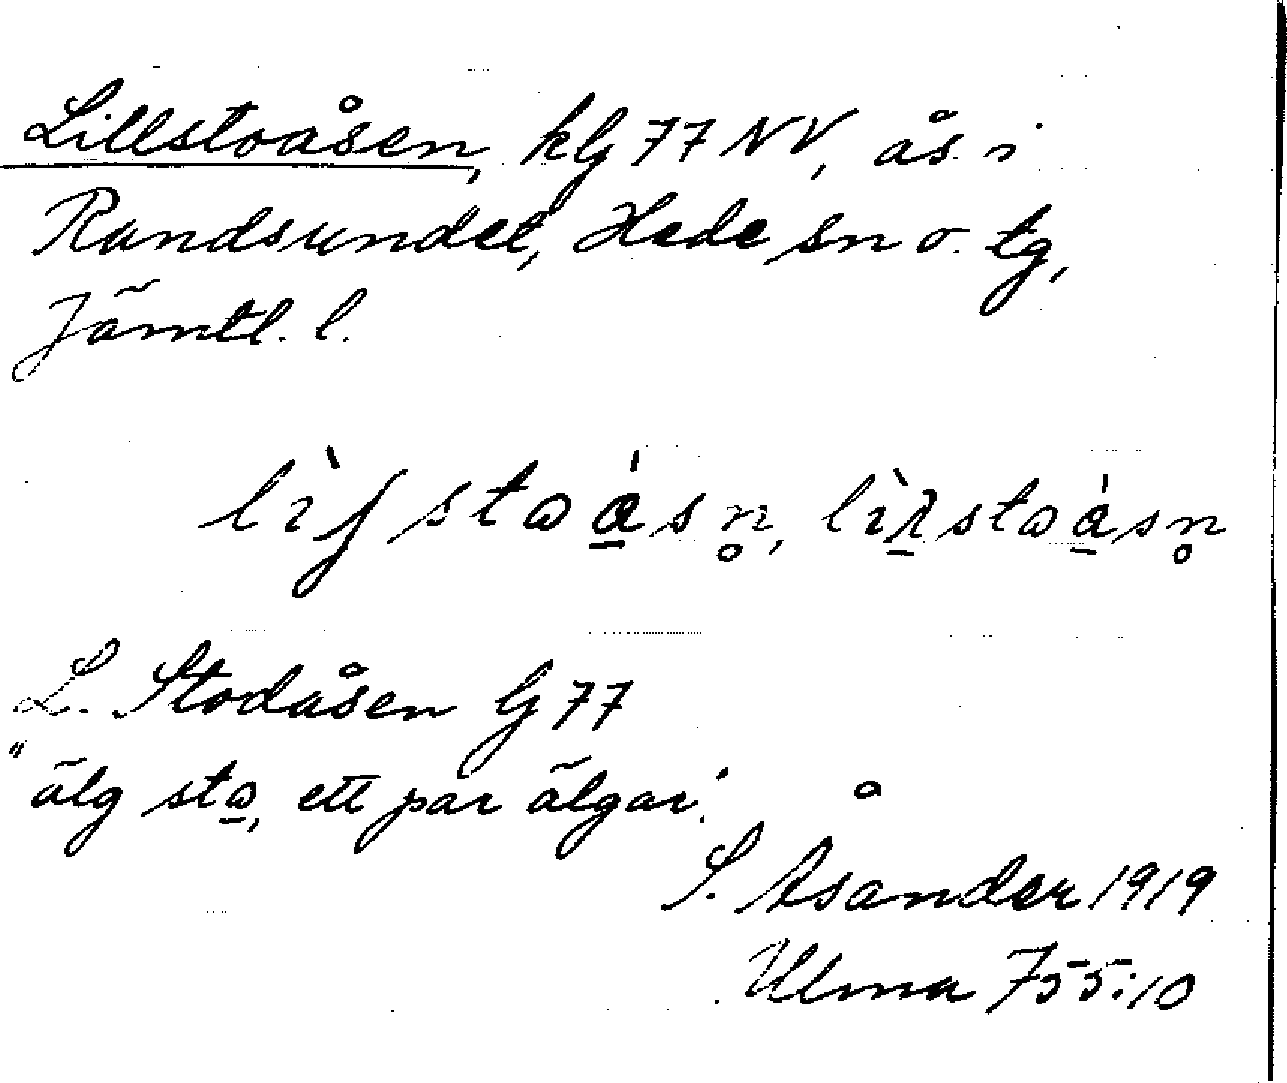 Lillstoåsen, kG 77 NV, ås i
Randsundet, Hede sn o. tg,
Jämtl. l.
L. Stodåsen G 77
"älg sto, ett par älgar".
S. Åsander 1919
Ulma 755:10